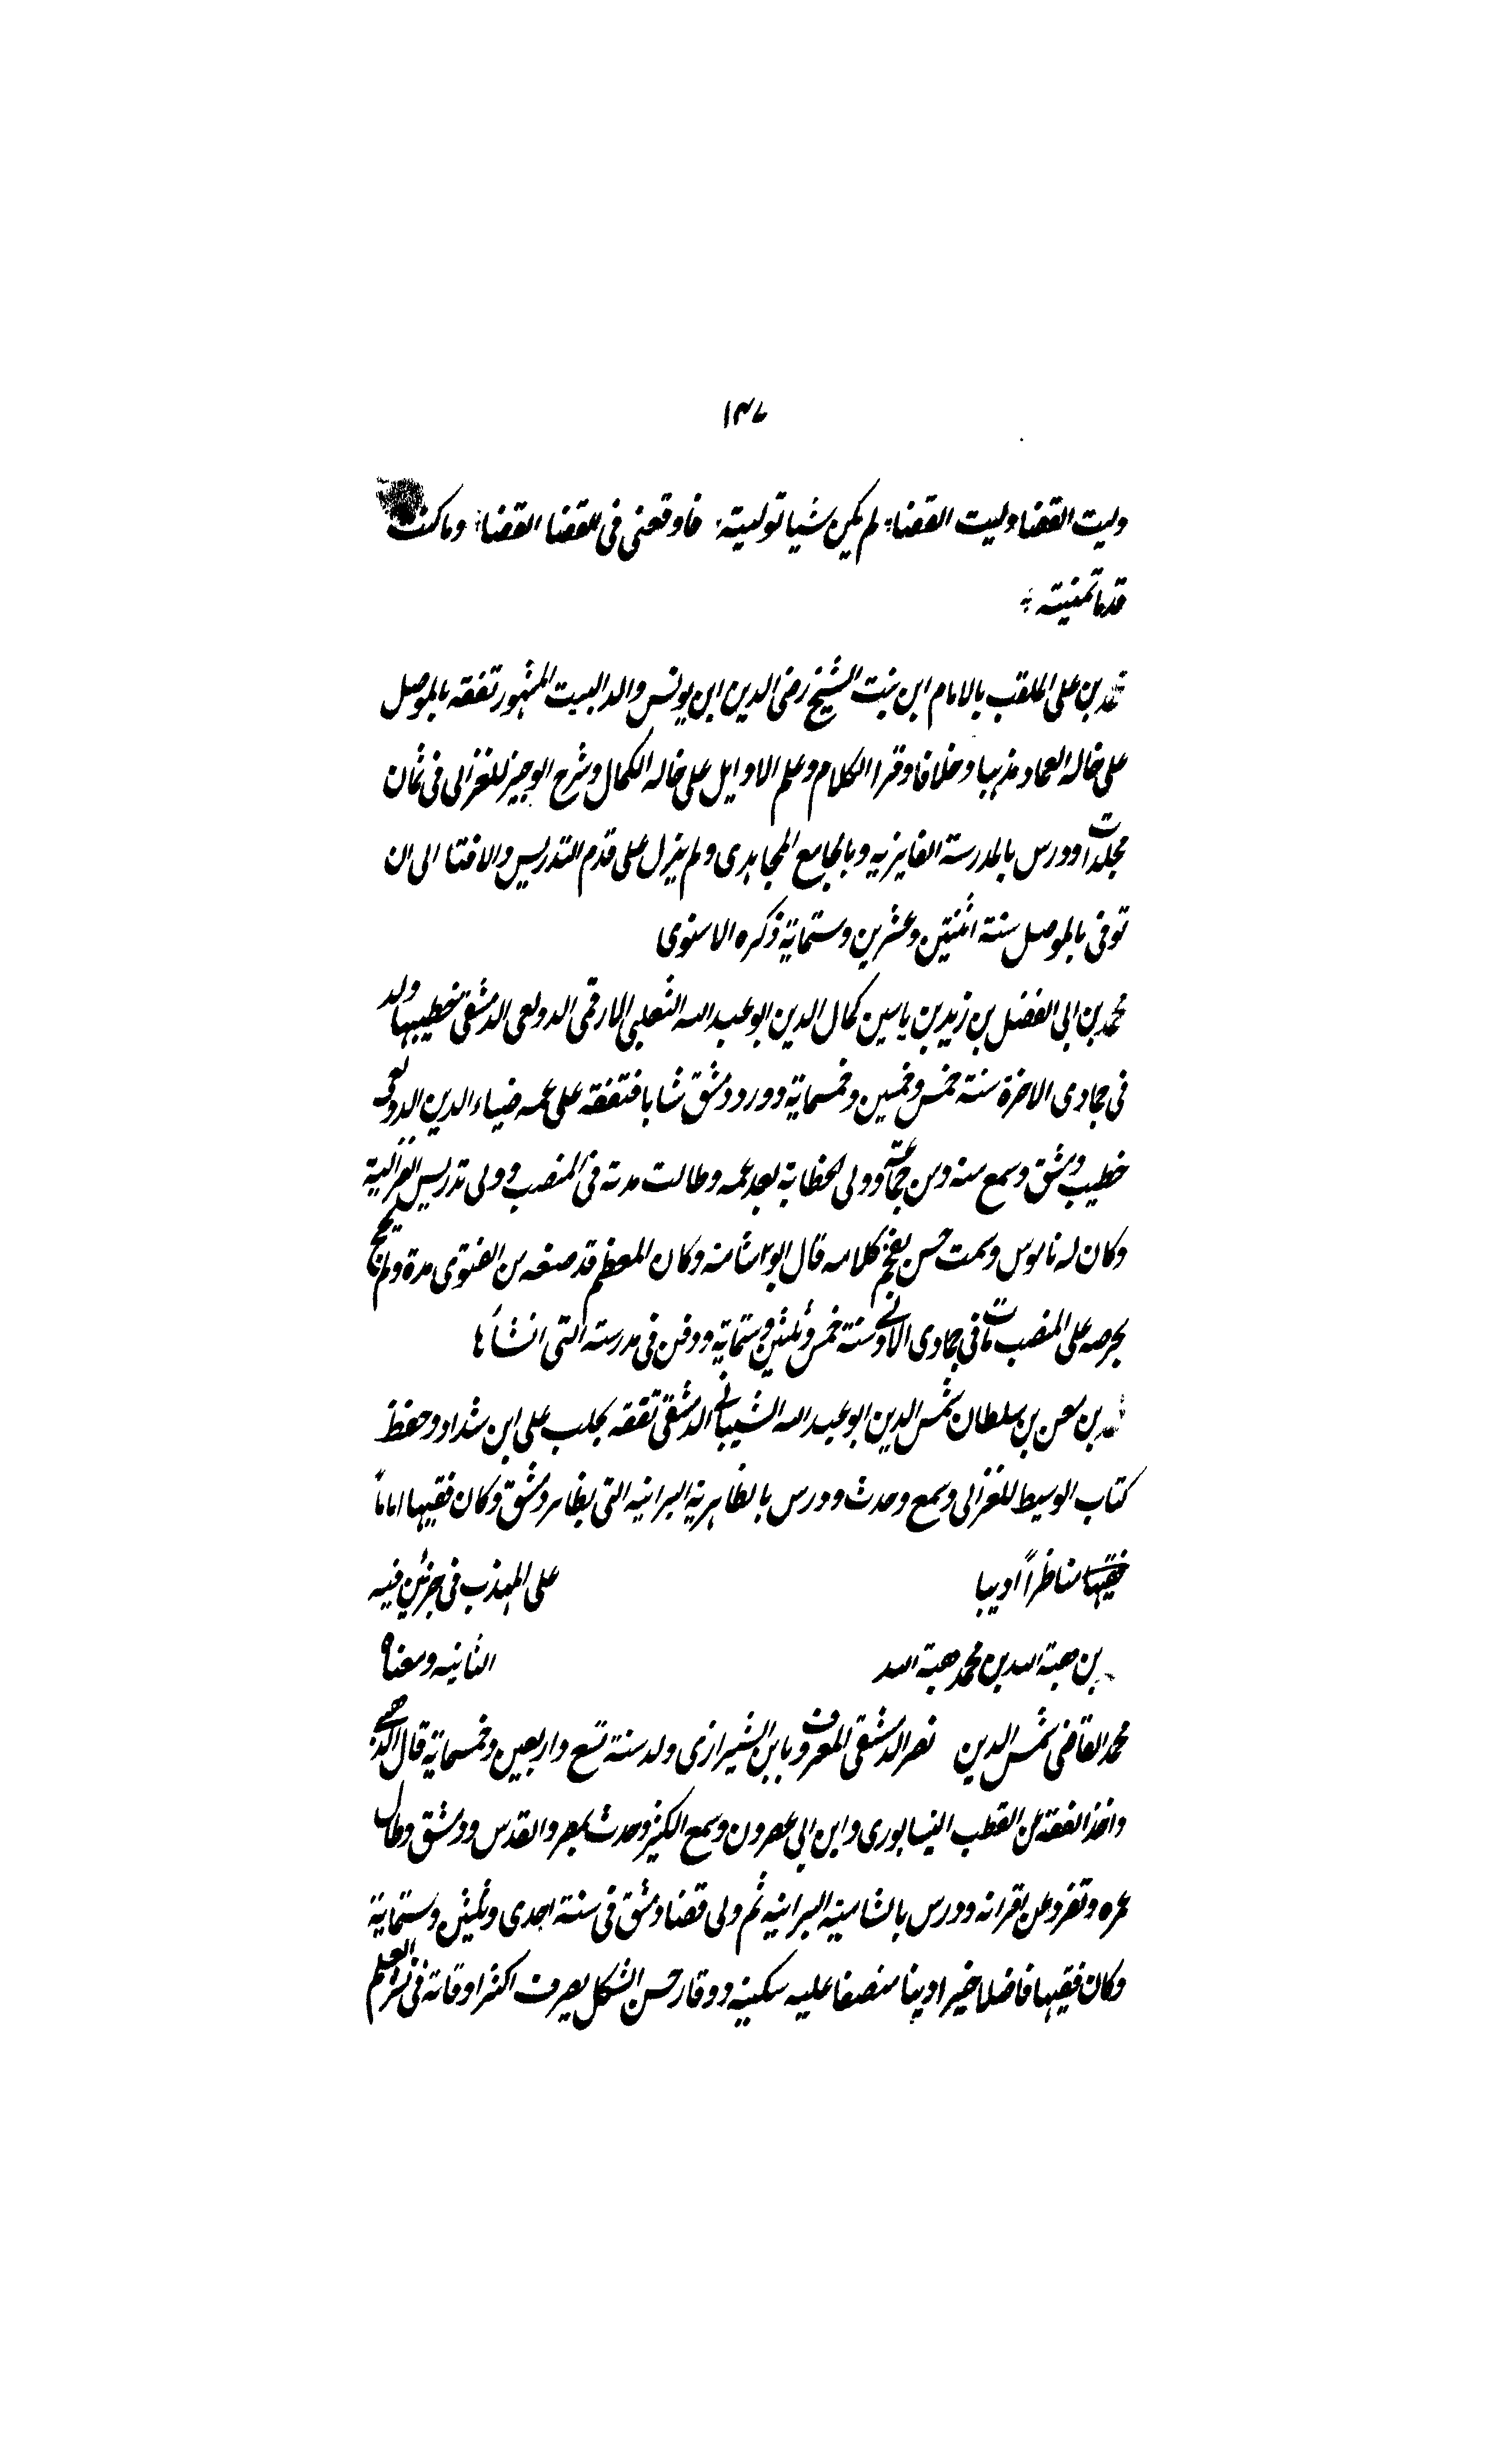 ١٣٧
وليت القضا وليت القضاء لم يكن شيا توليته فاوقعنى فى القضا القضا وما كنت
قدما تمنيته
محمد بن على الملقب بالامام ابن بنت الشيخ رضى الدين ابن يونس والد البيت المشهور تفقه بالموصل
على خاله العماد مذهبا وخلافا وقرا الكلام وعلم الاوايل على خاله الكمال وشرح الوجيز للغزالى فى ثمان
مجلدات ودرس بالمدرسة الفايزيه وبالجامع المجاهدى ولم يزل على قدم التدريس والافتا الى ان
توفى بالموصل سنة اثنتين وعشرين وستماية ذكره الاسنوى
محمد بن ابى الفضل بن زيد بن ياسين كمال الدين ابو عبد الله الثعلبى الارقمى الدولعى الدمشقى خطيبها ولد
فى جمادى الاخرة سنة خمس وخمسين وخمسماية وورد دمشق شابا فتفقه على عمه ضياء الدين الدولعى
خطيب دمشق وسمع منه ومن جماعة وولى الخطابة بعد عمه وطالت مدته فى المنصب وولى تدريس الغزالية
وكان له ناموس وسمت حسن يفخم كلامه قال ابو شامه وكان المعظم قد منعه من الفتوى مدة ولم يحج
لحرصه على المنصب مات فى جمادى الاولى سنة خمس وثلثين وستماية ودفن فى مدرسته التى انشأها
بن معن بن سلطان شمس الدين ابو عبد الله الشيبانى الدمشقى تفقه بحلب على ابن شداد وحفظ
كتاب الوسيط للغزالى وسمع وحدث ودرس بالظاهرية البرانيه التى بظاهر دمشق وكان فقيها اماماً
فقيها مناظراً اديبا على المهذب فى جزئين فيه
بن هبة الله بن محمد هبة الله الثانيه ومعناه
محمد القاضى شمس الدين نصر الدمشقى المعروف بابن الشيرازى ولد سنة تسع واربعين وخمسماية قال الذهبى
واخذ الفقه عن القطب النيسابورى وابن ابى عصرون وسمع الكثير وحدث بمصر والقدس ودمشق وطال
عمره وتفرد عن اقرانه ودرس بالشاميه البرانيه ثم ولى قضا دمشق فى سنة احدى وثلثين وستماية
وكان فقيها فاضلا خيرا دينا منصفا عليه سكينه ووقار حسن الشكل يصرف اكثر اوقاته فى نشر العلم